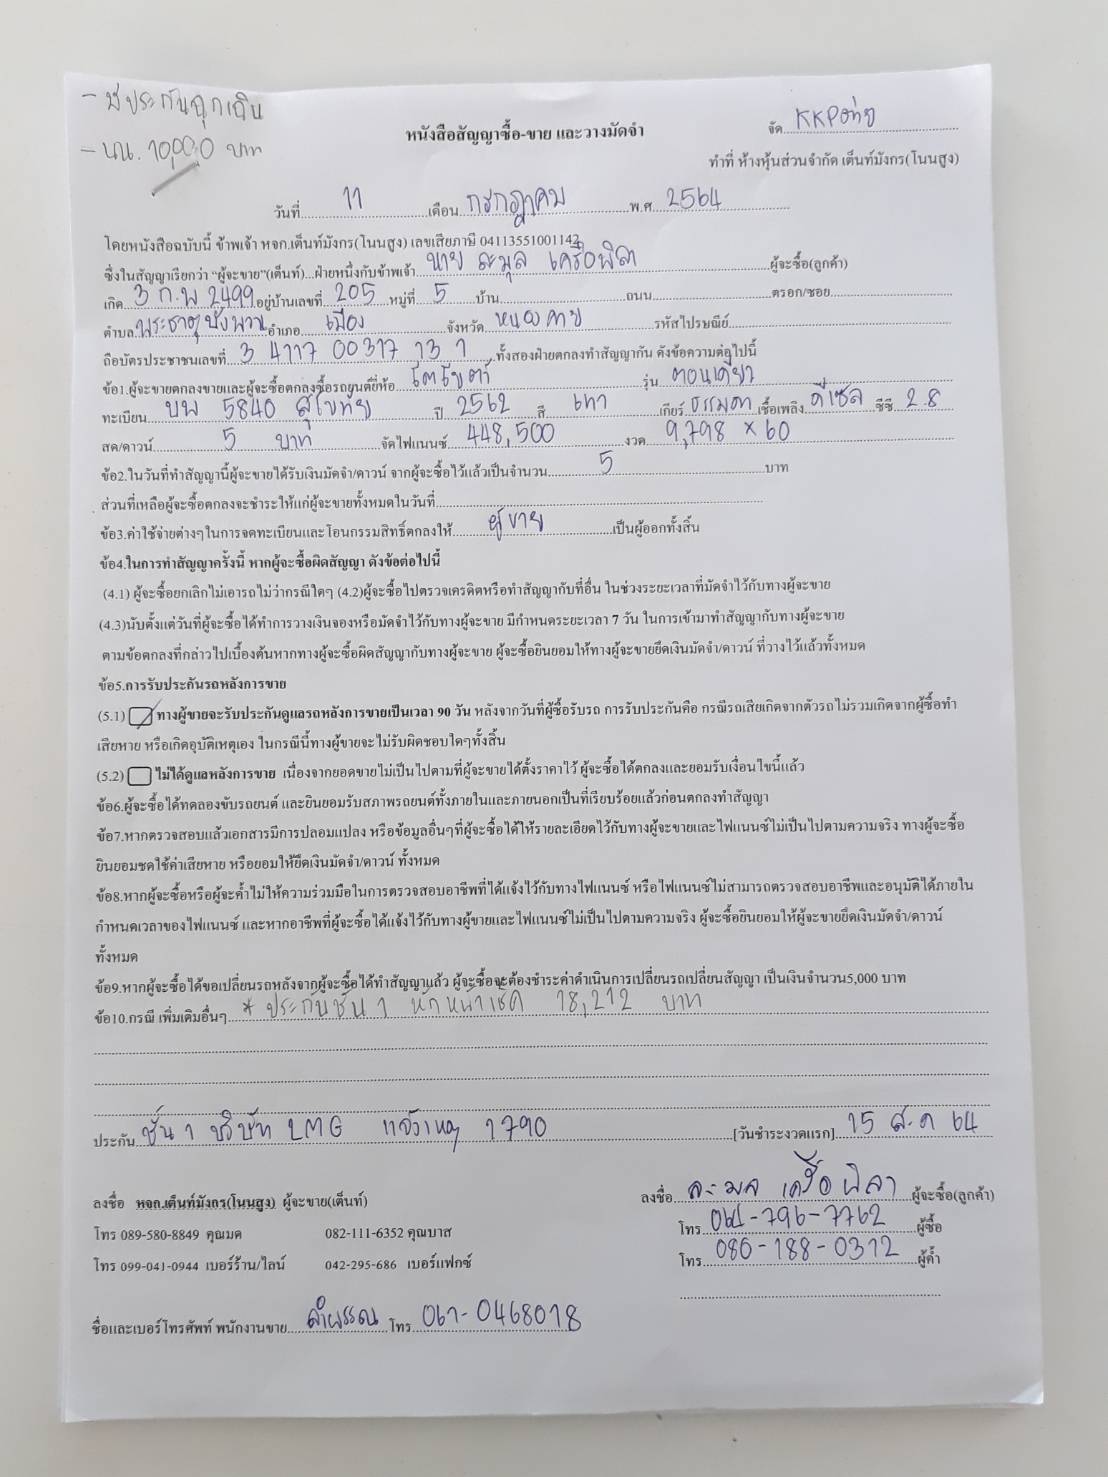 - มีประกันฉุกเฉิน
- นน. 10,000 บาท
หนังสือสัญญาซื้อ-ขาย และวางมัดจำ
จัด KKP
ทำที่ ห้างหุ้นส่วนจำกัด เต็นท์มังกร(โนนสูง)
วันที่ 11 เดือน กรกฎาคม พ.ศ. 2564
โดยหนังสือฉบับนี้ ข้าพเจ้า หจก.เต็นท์มังกร(โนนสูง) เลขเสียภาษี 04113551001142
ซึ่งในสัญญาเรียกว่า "ผู้จะขาย"(เต็นท์)...ฝ่ายหนึ่งกับข้าพเจ้า นาย ละมุล เครือพิลา ผู้จะซื้อ(ลูกค้า)
เกิด 3 ก.พ 2499 อยู่บ้านเลขที่ 205 หมู่ที่ 5 บ้าน ถนน ตรอก/ซอย
ตำบล พระธาตุบังพวน อำเภอ เมือง จังหวัด หนองคาย รหัสไปรษณีย์
ถือบัตรประชาชนเลขที่ 3 4117 00317 13 1 ทั้งสองฝ่ายตกลงทำสัญญากัน ดังข้อความต่อไปนี้
ข้อ1.ผู้จะขายตกลงขายและผู้จะซื้อตกลงซื้อรถยนต์ยี่ห้อ โตโยต้า รุ่น ตอนเดียว
ทะเบียน บพ 5840 สุโขทัย ปี 2562 สี เทา เกียร์ ธรรมดา เชื้อเพลิง ดีเซล ซีซี 2.8
สด/ดาวน์ 5 บาท จัดไฟแนนซ์ 448,500 งวด 9,798 x 60
ข้อ2.ในวันที่ทำสัญญานี้ผู้จะขายได้รับเงินมัดจำ/ดาวน์ จากผู้จะซื้อไว้แล้วเป็นจำนวน 5 บาท
ส่วนที่เหลือผู้จะซื้อตกลงจะชำระให้แก่ผู้จะขายทั้งหมดในวันที่
ข้อ3.ค่าใช้จ่ายต่างๆในการจดทะเบียนและโอนกรรมสิทธิ์ตกลงให้ ผู้ขาย เป็นผู้ออกทั้งสิ้น
ข้อ4.ในการทำสัญญาครั้งนี้ หากผู้จะซื้อผิดสัญญา ดังข้อต่อไปนี้
(4.1) ผู้จะซื้อยกเลิกไม่เอารถไม่ว่ากรณีใดๆ (4.2)ผู้จะซื้อไปตรวจเครดิตหรือทำสัญญากับที่อื่น ในช่วงระยะเวลาที่มัดจำไว้กับทางผู้จะขาย
(4.3)นับตั้งแต่วันที่ผู้จะซื้อ ได้ทำการวางเงินจองหรือมัดจำไว้กับทางผู้จะขาย มีกำหนดระยะเวลา 7 วัน ในการเข้ามาทำสัญญากับทางผู้จะขาย
ตามข้อตกลงที่กล่าวไปเบื้องต้นหากทางผู้จะซื้อผิดสัญญากับทางผู้จะขาย ผู้จะซื้อยินยอมให้ทางผู้จะขายยึดเงินมัดจำ/ดาวน์ ที่วางไว้แล้วทั้งหมด
ข้อ5.การรับประกันรถหลังการขาย
(5.1) ทางผู้ขายจะรับประกันดูแลรถหลังการขายเป็นเวลา 90 วัน หลังจากวันที่ผู้ซื้อรับรถ การรับประกันคือ กรณีรถเสียเกิดจากตัวรถไม่รวมเกิดจากผู้ซื้อทำ
เสียหาย หรือเกิดอุบัติเหตุเอง ในกรณีนี้ทางผู้ขายจะไม่รับผิดชอบใดๆทั้งสิ้น
(5.2) ไม่ได้ดูแลหลังการขาย เนื่องจากยอดขายไม่เป็นไปตามที่ผู้จะขายได้ตั้งราคาไว้ ผู้จะซื้อได้ตกลงและยอมรับเงื่อนไขนี้แล้ว
ข้อ6.ผู้จะซื้อได้ทดลองขับรถยนต์ และยินยอมรับสภาพรถยนต์ทั้งภายในและภายนอกเป็นที่เรียบร้อยแล้วก่อนตกลงทำสัญญา
ข้อ7.หากตรวจสอบแล้วเอกสารมีการปลอมแปลง หรือข้อมูลอื่นๆที่ผู้จะซื้อได้ให้รายละเอียดไว้กับทางผู้จะขายและไฟแนนซ์ไม่เป็นไปตามความจริง ทางผู้จะซื้อ
ยินยอมชดใช้ค่าเสียหาย หรือยอมให้ยึดเงินมัดจำ/ดาวน์ ทั้งหมด
ข้อ8.หากผู้จะซื้อหรือผู้จะค้ำไม่ให้ความร่วมมือในการตรวจสอบอาชีพที่ได้แจ้งไว้กับทางไฟแนนซ์ หรือไฟแนนซ์ไม่สามารถตรวจสอบอาชีพและอนุมัติได้ภายใน
กำหนดเวลาของไฟแนนซ์ และหากอาชีพที่ผู้จะซื้อได้แจ้งไว้กับทางผู้ขายและไฟแนนซ์ไม่เป็นไปตามความจริง ผู้จะซื้อยินยอมให้ผู้จะขายยึดเงินมัดจำ/ดาวน์
ทั้งหมด
ข้อ9.หากผู้จะซื้อได้ขอเปลี่ยนรถหลังจากผู้จะซื้อได้ทำสัญญาแล้ว ผู้จะซื้อจะต้องชำระค่าดำเนินการเปลี่ยนรถเปลี่ยนสัญญา เป็นเงินจำนวน5,000 บาท
ข้อ10.กรณี เพิ่มเติมอื่นๆ * ประกันชั้น 1 หักหน้าเช็ค 18,212 บาท
ประกัน ชั้น 1 บริษัท LMG แจ้งเหตุ 1790 [วันชำระงวดแรก] 15 ส.ค 64
ลงชื่อ หจก.เต็นท์มังกร(โนนสูง) ผู้จะขาย(เต็นท์) ลงชื่อ ละมุล เครือพิลา ผู้จะซื้อ(ลูกค้า)
โทร 089-580-8849 คุณมด 082-111-6352 คุณบาส โทร 061-796-7762 ผู้ซื้อ
โทร 099-041-0944 เบอร์ร้าน/ไลน์ 042-295-686 เบอร์แฟกซ์ โทร 086-188-0312 ผู้ค้ำ
ชื่อและเบอร์โทรศัพท์ พนักงานขาย ลำพรรณ โทร 061-0468018